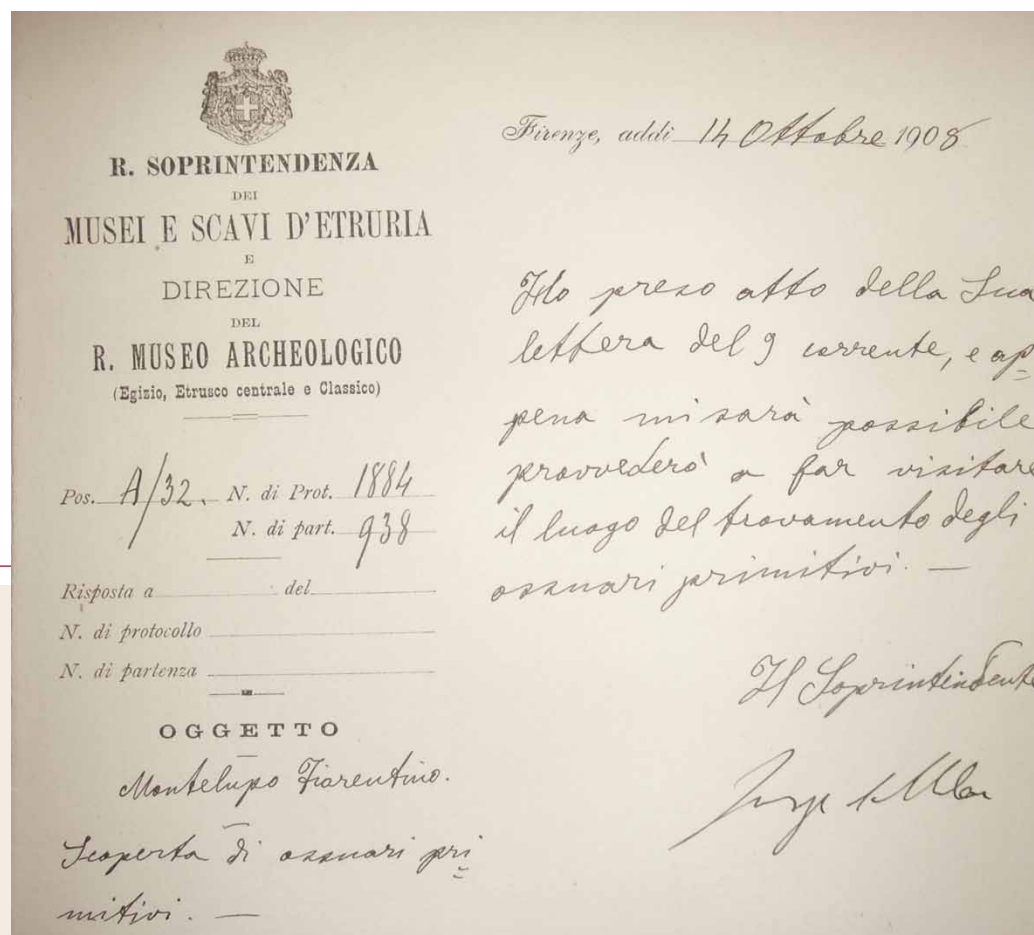 R. SOPRINTENDENZA
DEI
MUSEI E SCAVI D'ETRURIA
E
DIREZIONE
DEL
R. MUSEO ARCHEOLOGICO
(Egizio, Etrusco centrale e Classico)
Pos. A/32. N. di Prot. 1884
N. di part. 938
Risposta a del
N. di protocollo
N. di partenza
OGGETTO
Montelupo Fiorentino.
Scoperta di ossuari pri
mitivi. —
Firenze, addì 14 Ottobre 1908
Ho preso atto della Sua
lettera del 9 corrente, e ap
pena mi sarà possibile
provvederò a far visitare
il luogo del trovamento degli
ossuari primitivi. —
Il Soprintendente